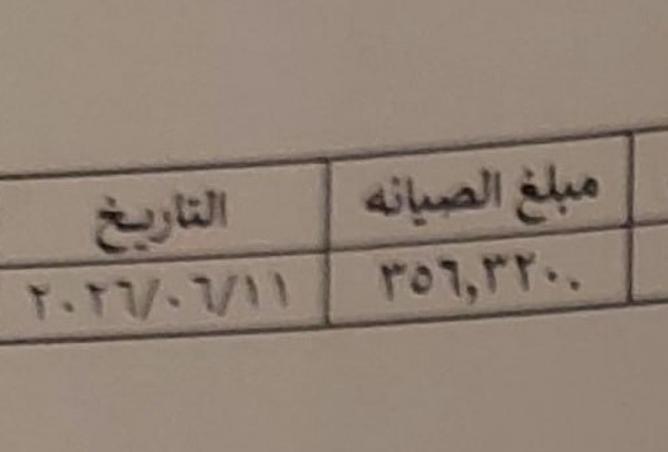 مبلغ الصيانه التاريخ
٣٥٦,٣٢٠٠ ٢٠٢٦/٠٦/١١